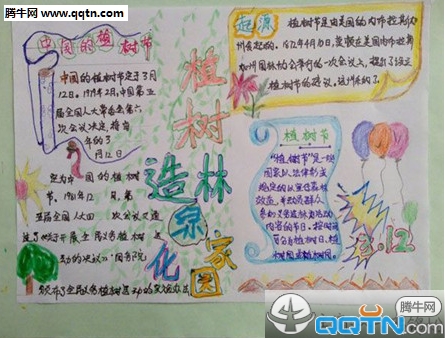 腾牛网
www.qqtn.com
中国的植树节
中国的植树节定于3月
12日。1979年2月,中国第五
届全国人大常委会第六
次会议决定,将每
年的3
月12日
定为中国的植树节,
1981年12月,第
五届全国人大四次会议又通
过了
开展全民义务植树
的决议》。国务院
植树
造林
绿化
家园
起源
植树节是由美国的内布拉斯加
州发起的。1872年4月10日,莫顿在美国内布拉斯
加州园林协会举行的一次会议上,提出了设定
植树节的建议。
植树节
“植树节”是一些
国家以法律形式
规定的以宣传森林
效益,并动员群众
参加义务造林为活动
内容的节日。按时间
可分为植树日、植
树周或植树月。
3.12
腾牛网
QQTN.com